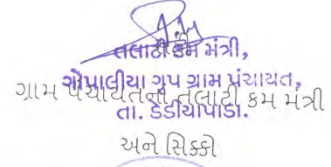 તલાટી કમ મંત્રી,
ગોપાલીયા ગ્રુપ ગ્રામ પંચાયત,
ગ્રામ પંચાયતના તલાટી કમ મંત્રી
તા. ડેડીયાપાડા.
અને સિક્કો